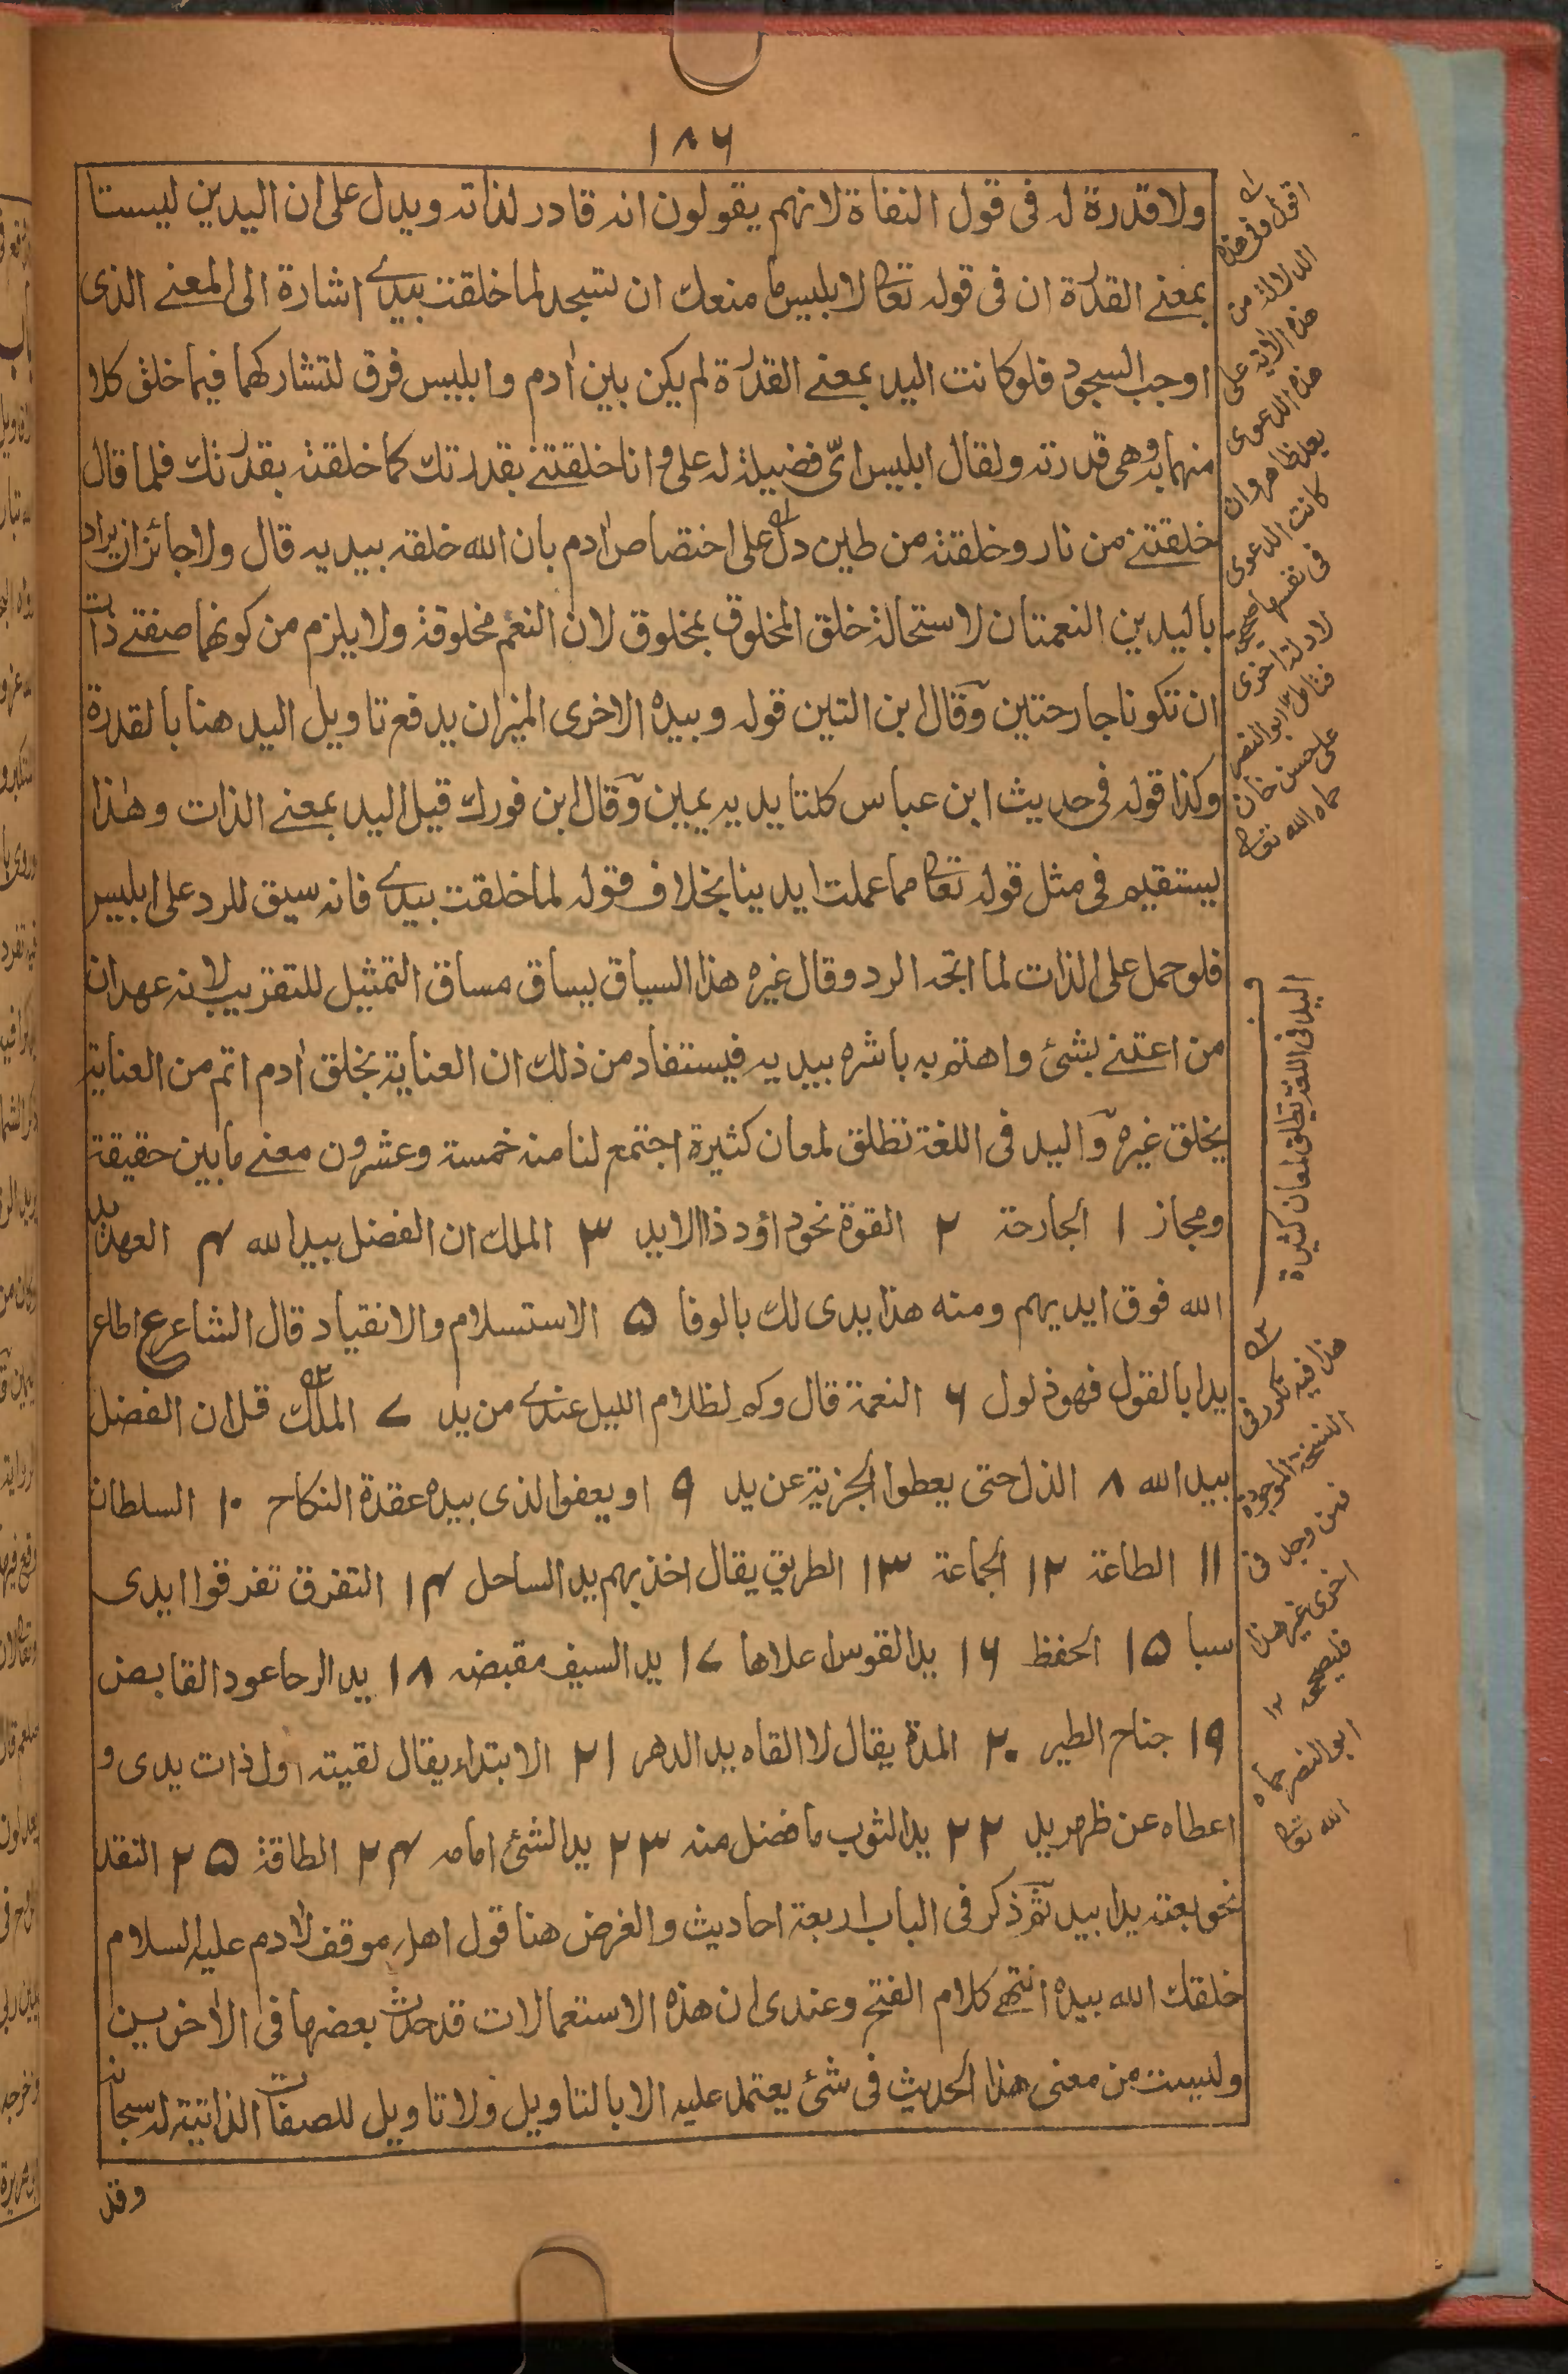 ١٨٦
ولا قدرة له فى قول النفاة لانهم يقولون انه قادر لذاته ويدل على ان اليدين ليستا
بمعنے القدرة ان فى قوله تعالى لابليس ما منعك ان تسجد لما خلقت بيدے اشارة الى المعنے الذى
اوجب السجود فلو كانت اليد بمعنے القدرة لم يكن بين اٰدم وابليس فرق لتشاركهما فيما خلق كلا
منهما به وهى قدرته ولقال ابليس اىّ فضيلة له على وانا خلقتنے بقدرتك كما خلقته بقدرتك فلما قال
خلقتنے من نار وخلقته من طين دل على اختصاص اٰدم بان الله خلقه بيديه قال ولا جائز ان يراد
باليدين النعمتان لاستحالة خلق المخلوق بمخلوق لان النعم مخلوقة ولا يلزم من كونهما صفتے ذات
ان تكونا جارحتين وقال ابن التين قوله وبيده الاخرى الميزان يدفع تاويل اليد هنا بالقدرة
وكذا قوله فى حديث ابن عباس كلتا يديه يمين وقال ابن فورك قيل اليد بمعنے الذات وهٰذا
يستقيم فى مثل قوله تعالى مما عملت ايدينا بخلاف قوله لما خلقت بيدے فانه سيق للرد على ابليس
فلو حمل على الذات لما اتجه الرد وقال غيره هذا السياق يساق مساق التمثيل للتقريب لانه عهد ان
من اعتنے بشئ واهتم به باشره بيديه فيستفاد من ذلك ان العناية بخلق اٰدم اتم من العناية
بخلق غيره واليد فى اللغة تطلق لمعان كثيرة اجتمع لنا منه خمسة وعشرون معنے ما بين حقيقة
ومجاز ١ الجارحة ٢ القوة نحو داؤد ذا الايد ٣ الملك ان الفضل بيد الله ٤ العهد يد
الله فوق ايديهم ومنه هذا يدى لك بالوفا ٥ الاستسلام والانقياد قال الشاعر ع اطاع
يدا بالقول فهو ذلول ٦ النعمة قال وكم لظلام الليل عندے من يد ٧ الملك قل ان الفضل
بيد الله ٨ الذل حتى يعطوا الجزية عن يد ٩ او يعفوا الذى بيده عقدة النكاح ١٠ السلطان
١١ الطاعة ١٢ الجماعة ١٣ الطريق يقال اخذ بهم يد الساحل ١٤ التفرق تفرقوا ايدى
سبا ١٥ الحفظ ١٦ يد القوس اعلاها ١٧ يد السيف مقبضه ١٨ يد الرحا عود القابض
١٩ جناح الطير ٢٠ المدة يقال لا القاه يد الدهر ٢١ الابتداء يقال لقيته اول ذات يدى و
اعطاه عن ظهر يد ٢٢ يد الثوب ما فضل منه ٢٣ يد الشئ امامه ٢٤ الطاقة ٢٥ النقد
نحو بعته يدا بيد ثم ذكر فى الباب اربعة احاديث والغرض هنا قول اهل موقف لاٰدم عليه السلام
خلقك الله بيده انتهے كلام الفتح وعندى ان هذه الاستعمالات قد حدث بعضها فى الاٰخرين
وليست من معنى هذا الحديث فى شئ يعتمد عليه الا بالتاويل ولا تاويل للصفات الذاتية له سبحانه
وقد
اقول وفى هذه
الدلالة من
هذه الاٰية على
هذه الدعوى
بعد ظاهر وان
كانت الدعوى
فى نفسها صحيحة
لادلة اخرى
فتامل ١٢ ابو النصر
على حسن خان
حماه الله تعالى
اليد فى اللغة تطلق لمعان كثيرة
هذا فيه تكرر فى
النسخة الموجودة
فمن وجد فى
اخرى غير هذا
فليصححه ١٢
ابو النصر حماه
الله تعالى